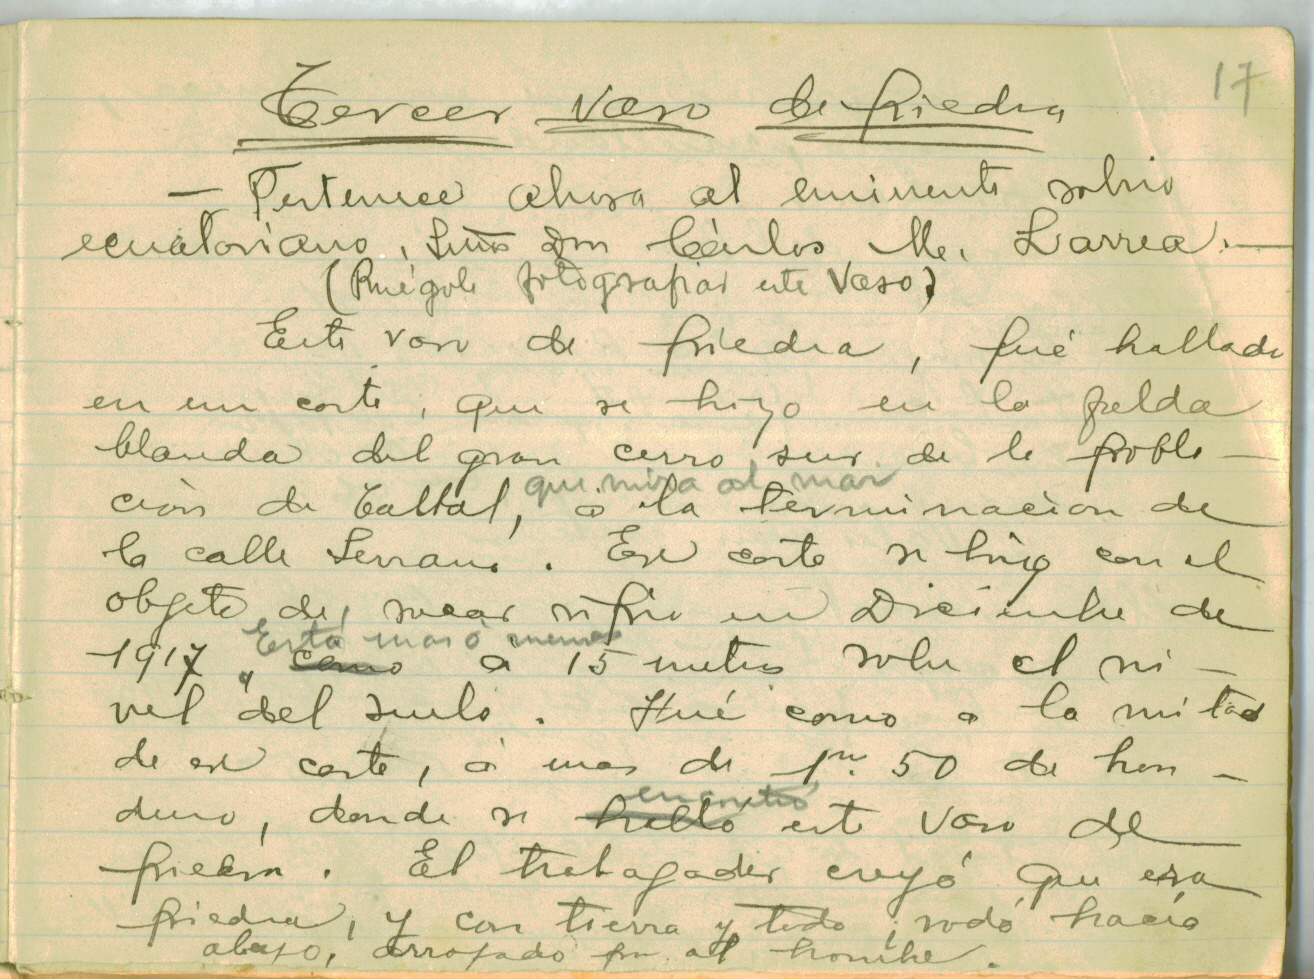 17
Tercer vaso de piedra
— Pertenece ahora al eminente sabio
ecuatoriano, Señor Don Cárlos M. Larrea. —
(Ruégole fotografiar este Vaso)
Este vaso de piedra, fué hallado
en un corte, que se hizo en la falda
blanda del gran cerro sur de la pobla-
que mira al mar
ción de Taltal, á la terminación de
la calle Serrano. Ese corte se hizo con el
objeto de sacar ripio en Diciembre de
Está mas ó menos
1917, como a 15 metros sobre el ni-
vel del suelo. Fué como a la mitad
de ese corte, á mas de 1m. 50 de hon-
encontró
dura, donde se halló este vaso de
piedra. El trabajador creyó que era
piedra, y con tierra y todo, rodó hacía
abajo, arrojado por el hombre.